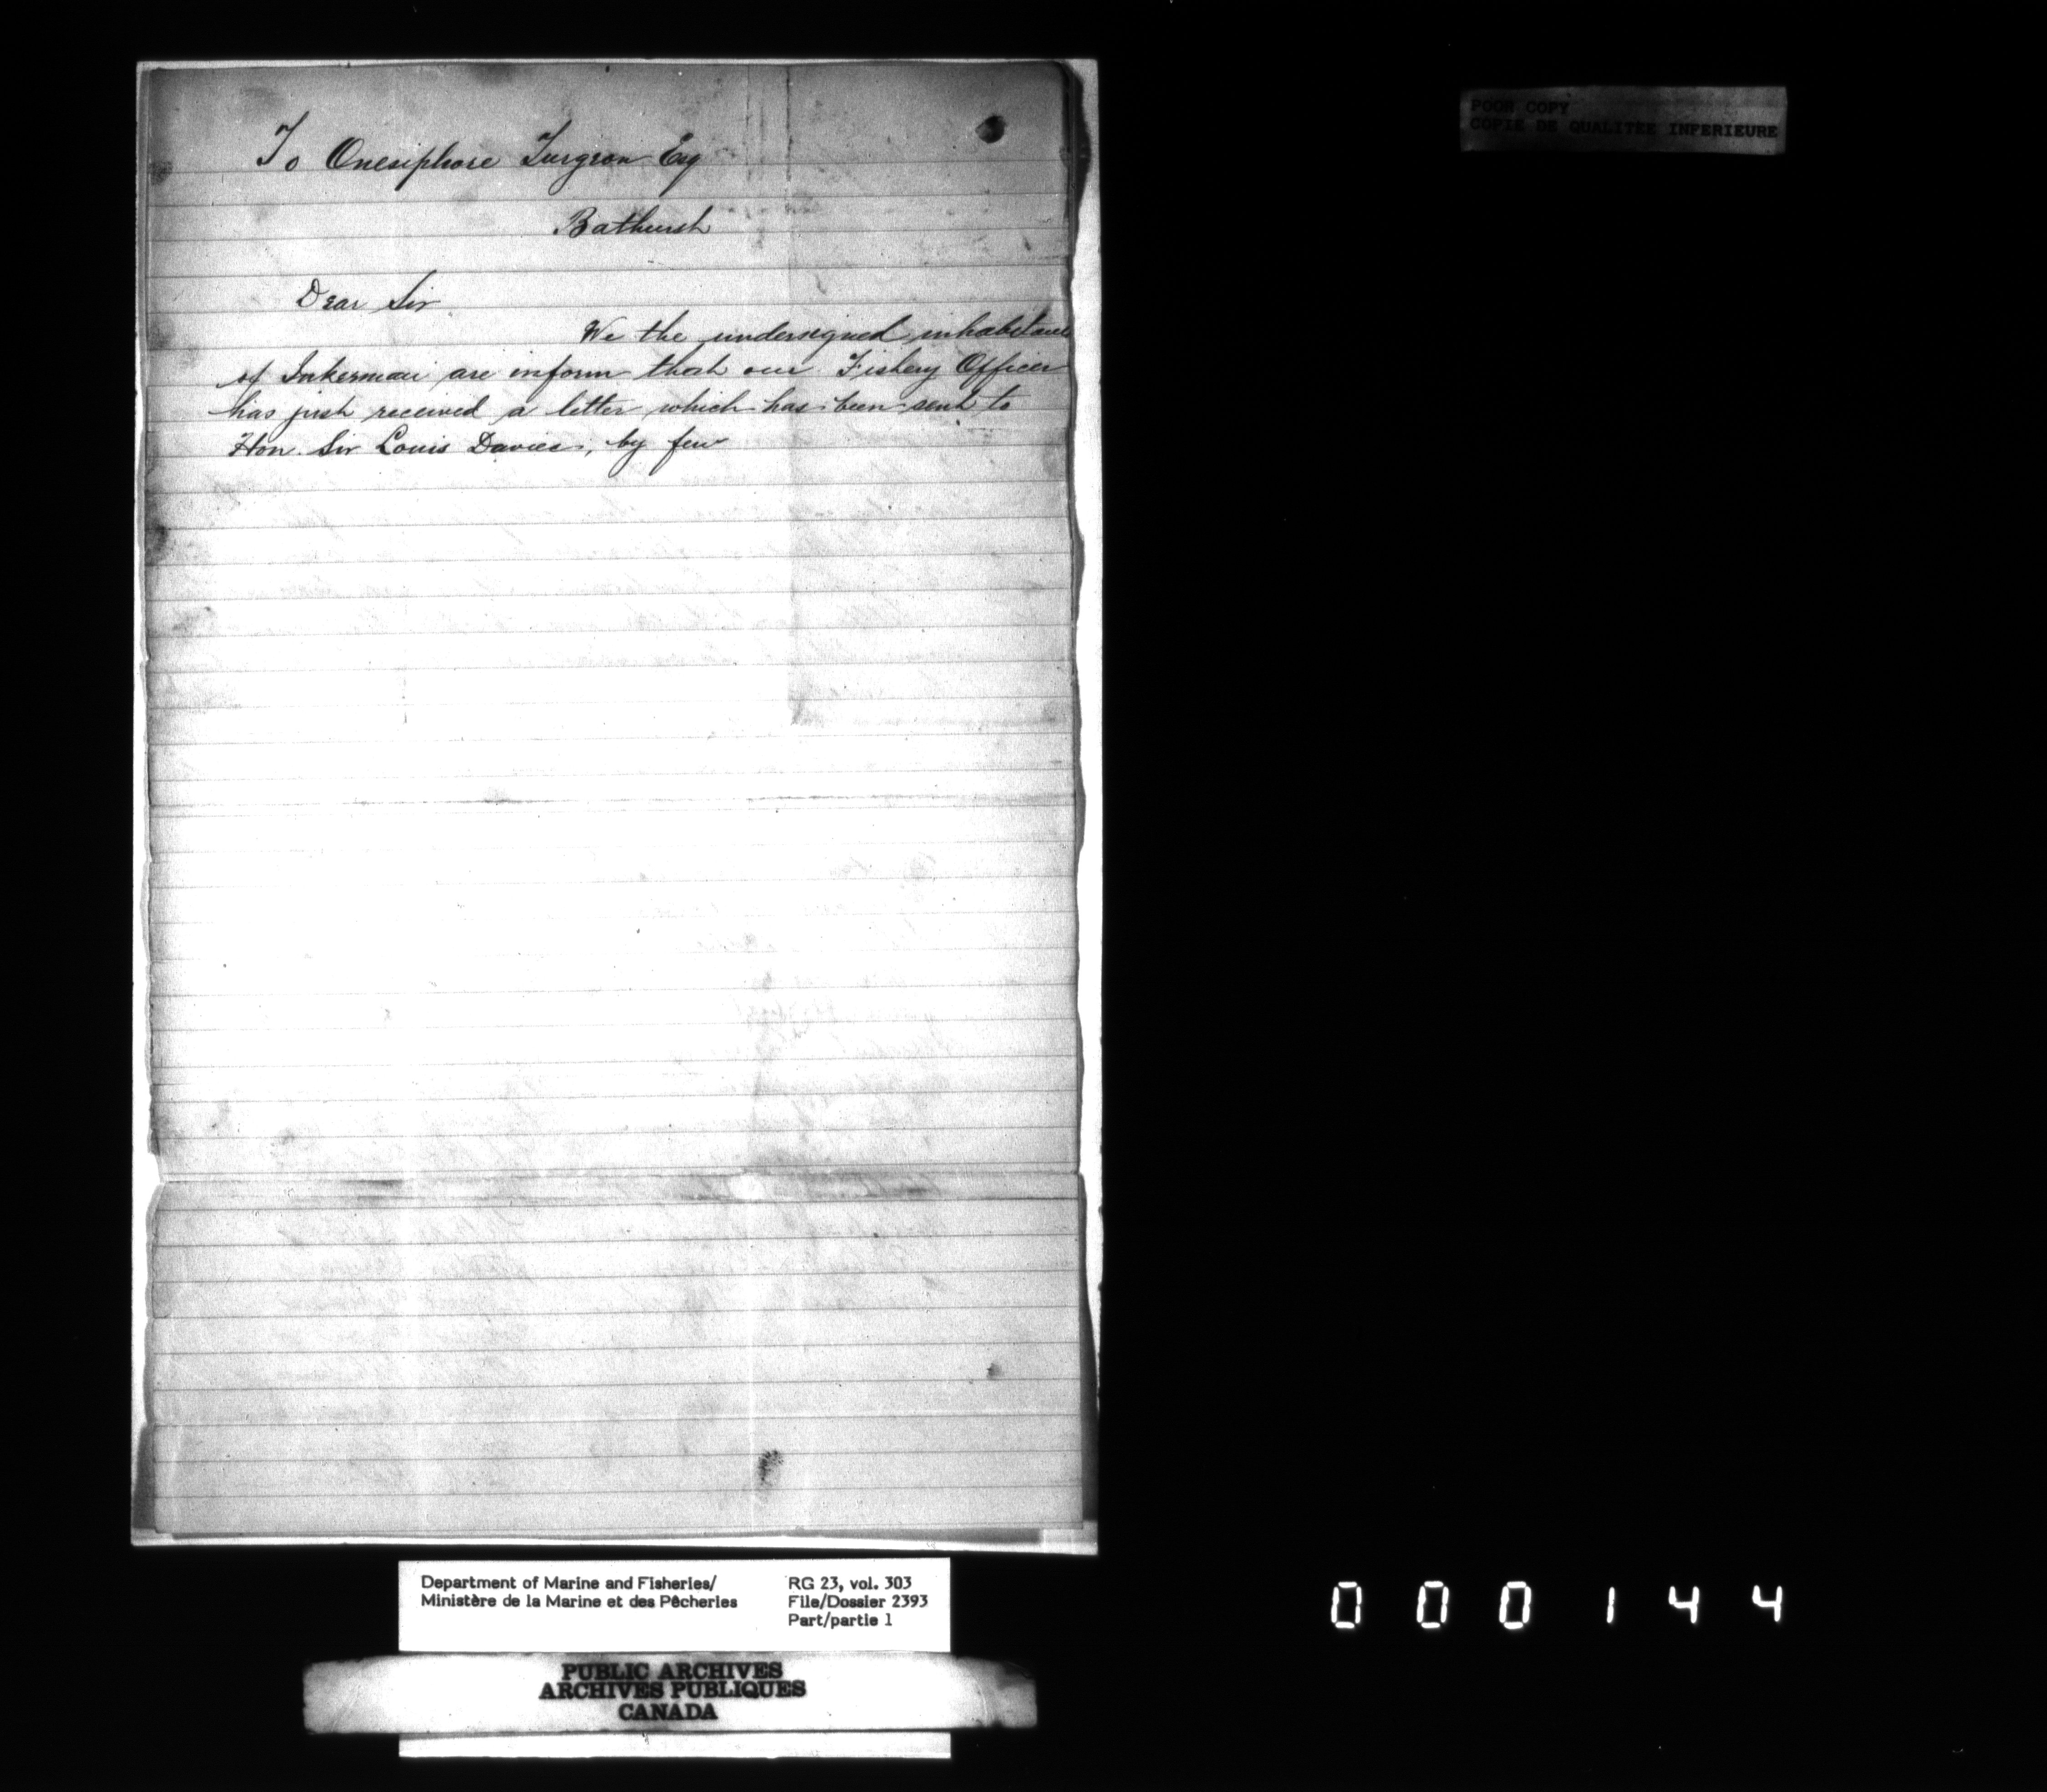 To Onesiphore Turgeon Esq
Bathurst
Dear Sir
We the undersigned inhabitants
of Inkerman are inform that our Fishery Officer
has just received a letter which has been sent to
Hon. Sir Louis Davies, by few
POOR COPY
COPIE DE QUALITEE INFERIEURE
Department of Marine and Fisheries/
Ministère de la Marine et des Pêcheries
RG 23, vol. 303
File/Dossier 2393
Part/partie 1
PUBLIC ARCHIVES
ARCHIVES PUBLIQUES
CANADA
000144